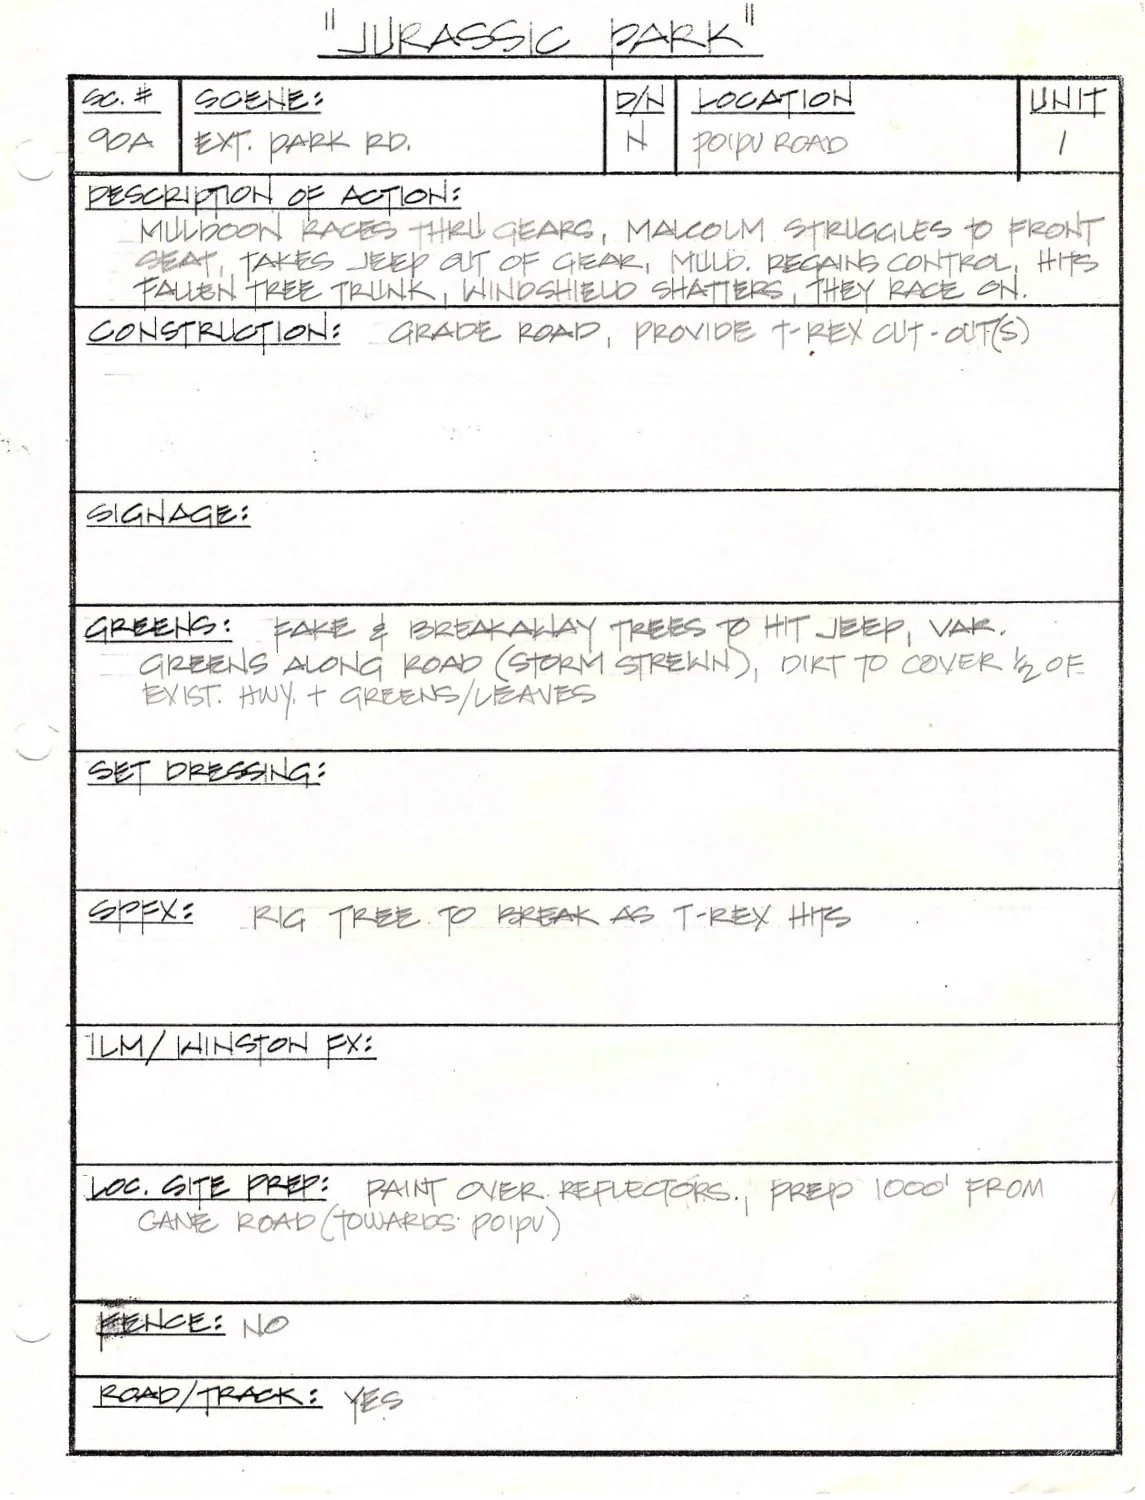 "JURASSIC PARK"
SC. # SCENE: D/N LOCATION UNIT
90A EXT. PARK RD. N POIPU ROAD 1
DESCRIPTION OF ACTION:
MULDOON RACES THRU GEARS, MALCOLM STRUGGLES TO FRONT
SEAT, TAKES JEEP OUT OF GEAR, MULD. REGAINS CONTROL, HITS
FALLEN TREE TRUNK, WINDSHIELD SHATTERS, THEY RACE ON.
CONSTRUCTION: GRADE ROAD, PROVIDE T-REX CUT-OUT(S)
SIGNAGE:
GREENS: FAKE & BREAKAWAY TREES TO HIT JEEP, VAR.
GREENS ALONG ROAD (STORM STREWN), DIRT TO COVER 1/2 OF
EXIST. HWY. + GREENS/LEAVES
SET DRESSING:
SPFX: RIG TREE TO BREAK AS T-REX HITS
ILM/WINSTON FX:
LOC. SITE PREP: PAINT OVER REFLECTORS., PREP 1000' FROM
CANE ROAD (TOWARDS POIPU)
FENCE: NO
ROAD/TRACK: YES